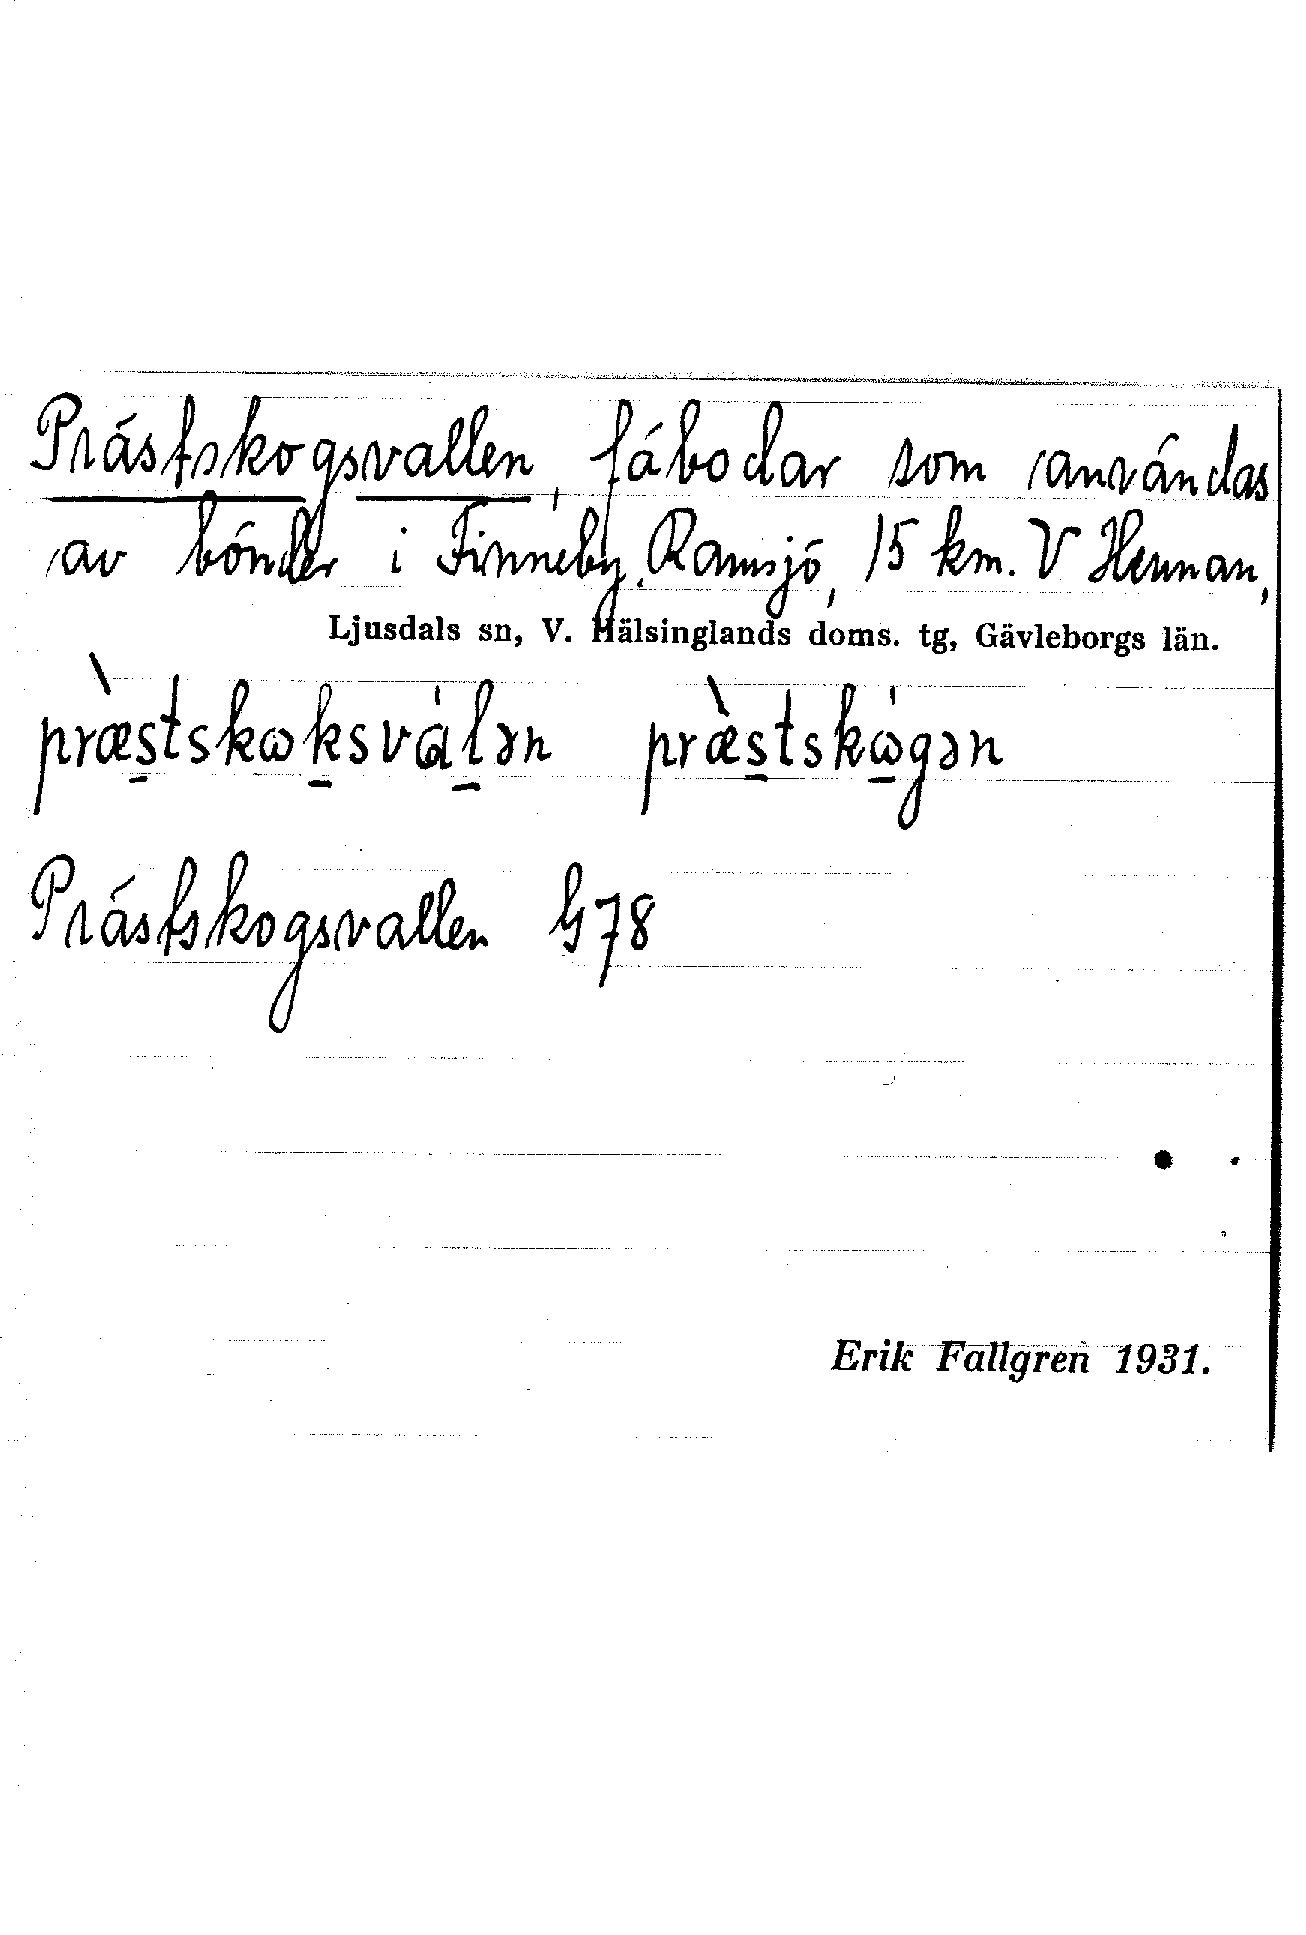 Prästskogsvallen, fäbodar som användas
av bönder i Finneby, Ramsjö, 15 km. V Hennan,
Ljusdals sn, V. Hälsinglands doms. tg, Gävleborgs län.
præ̀s̲tskωk̲svàl̲ən præ̀s̲tskὼ̲gən
Prästskogsvallen G78
Erik Fallgren 1931.